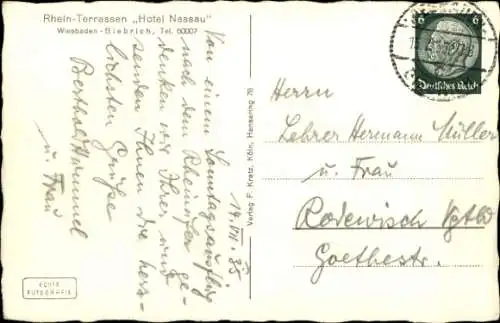 Rhein-Terrassen „Hotel Nassau"
Wiesbaden-Biebrich, Tel. 60007
14. VII. 35
Von einem Sonntagsausflug
nach dem Rheinufer ge-
denken wir Ihrer und
senden Ihnen die herz-
lichsten Grüße
Berthold Hummel
u. Frau
ECHTE
FOTOGRAFIE
Verlag F. Kratz, Köln, Hansaring 76
6
6
Deutsches Reich
Herrn
Lehrer Hermann Müller
u. Frau
Rodewisch Vgtld
Goethestr.